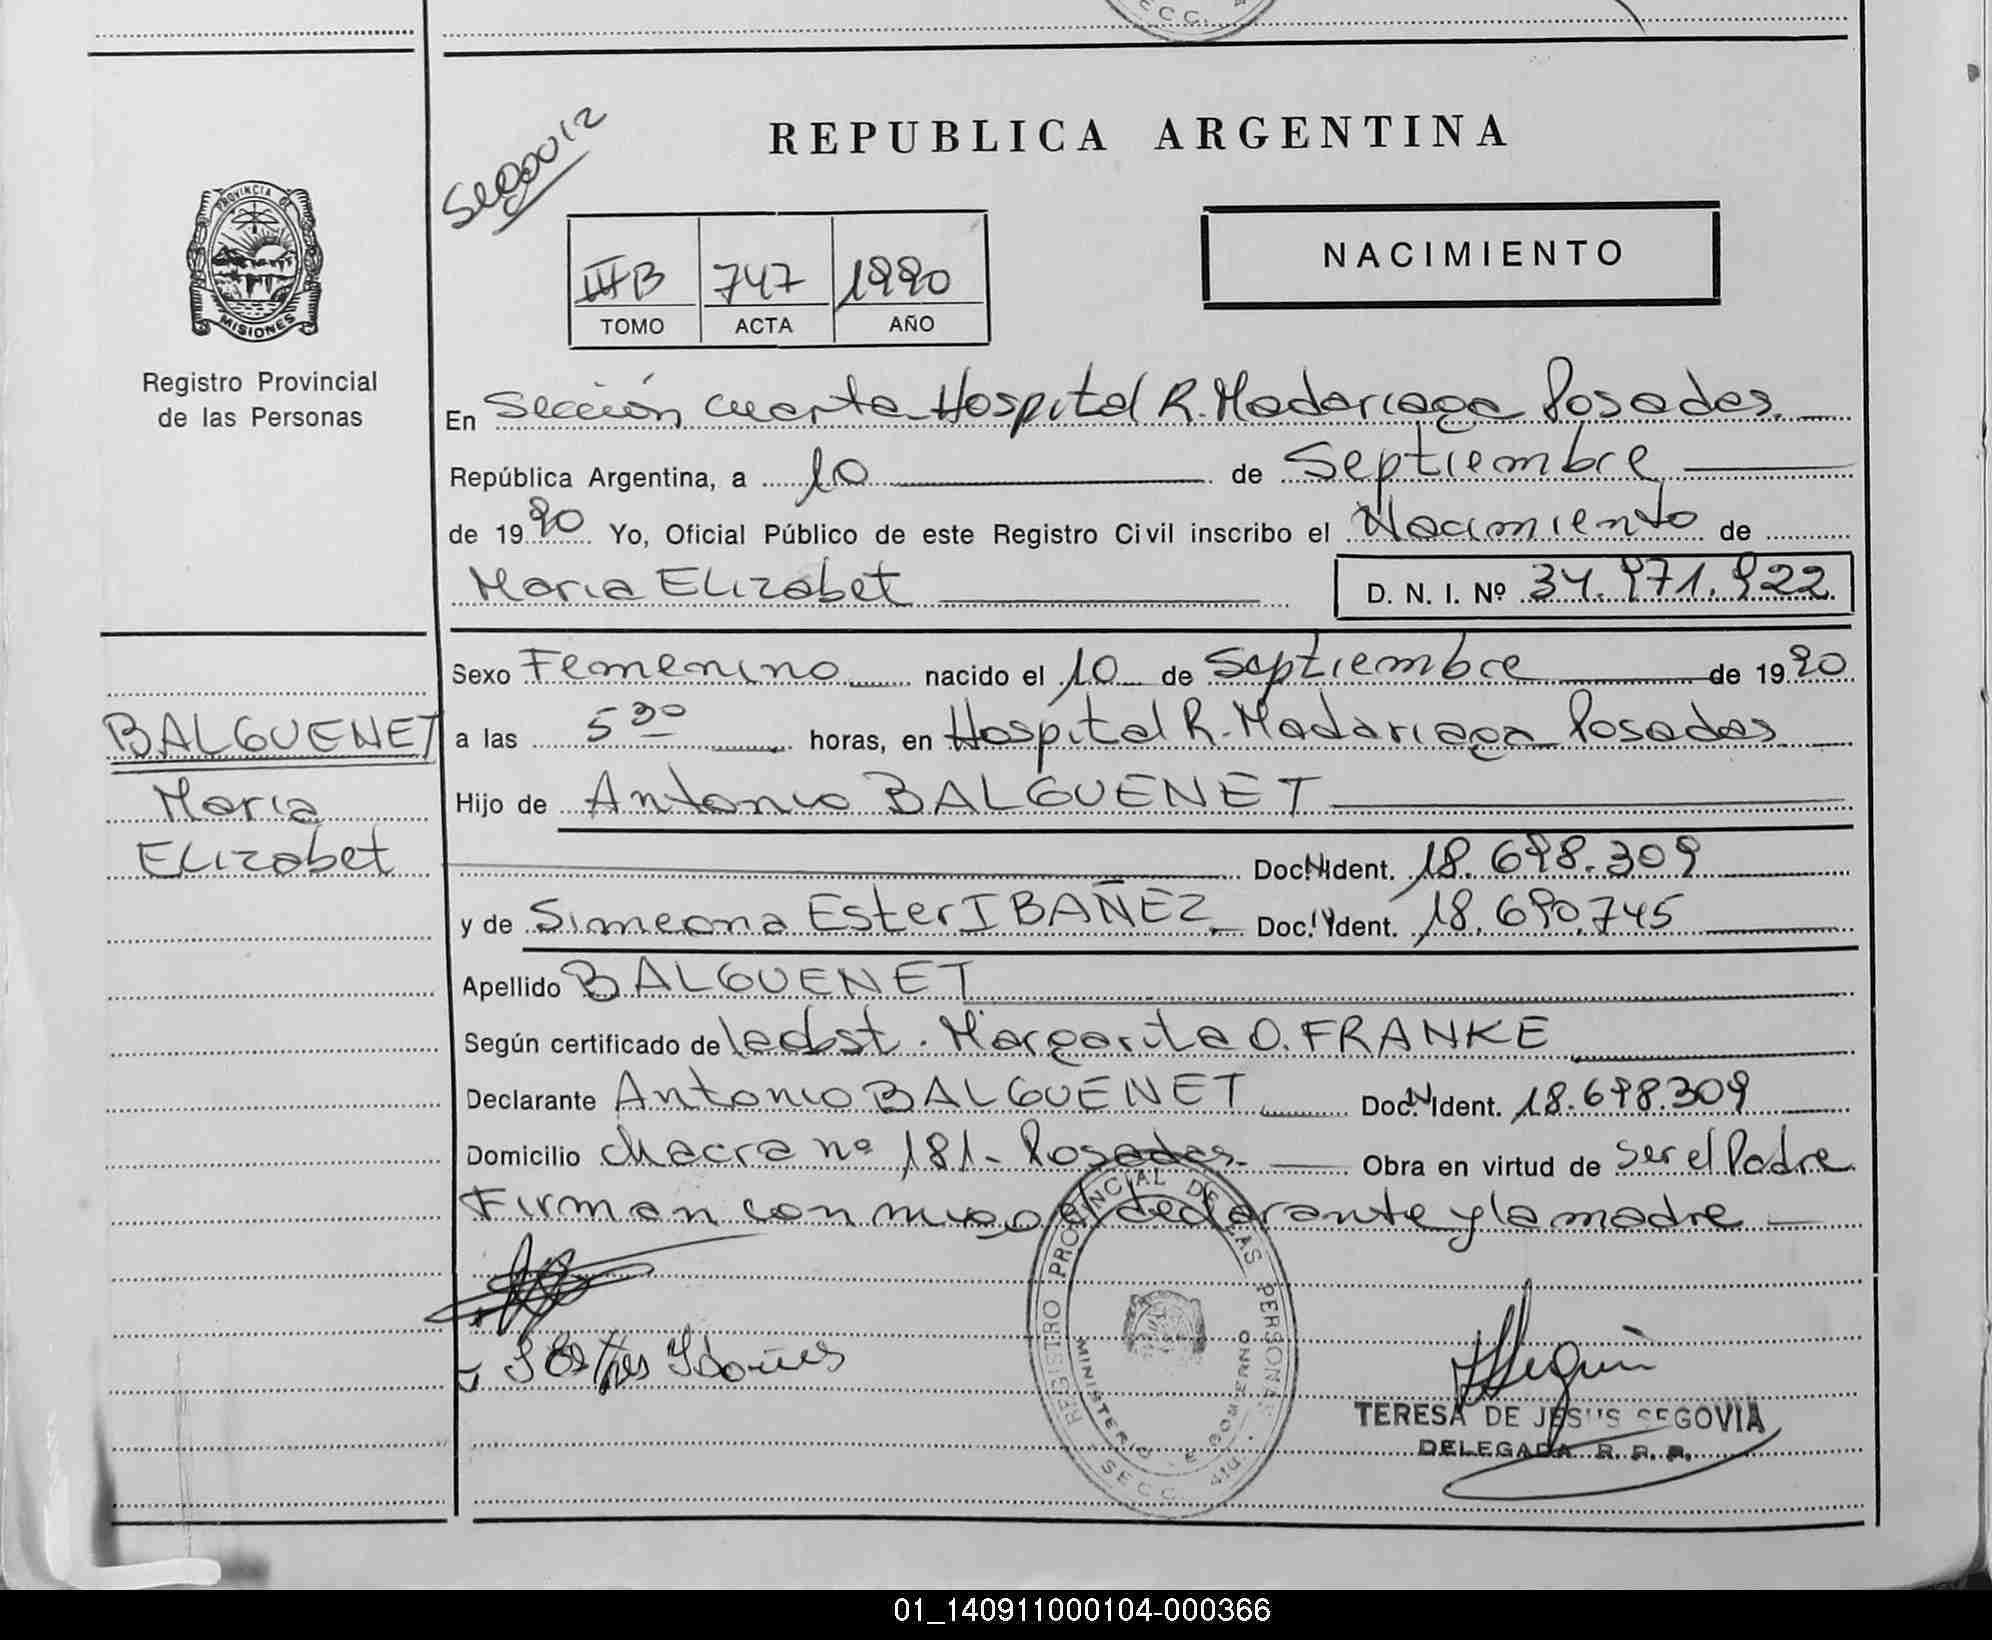 SECC.
REPUBLICA ARGENTINA
PROVINCIA DE
MISIONES
Registro Provincial
de las Personas
NACIMIENTO
III B 747 1990
TOMO ACTA AÑO
En Sección cuarta Hospital R. Madariaga Posadas.
República Argentina, a 10 de Septiembre
de 1990 Yo, Oficial Público de este Registro Civil inscribo el Nacimiento de
Maria Elizabet D. N. I. Nº 34.971.922
Sexo Femenino nacido el 10 de Septiembre de 1990
BALGUENET
Maria
Elizabet
a las 5 30 horas, en Hospital R. Madariaga Posadas
Hijo de Antonio BALGUENET
Doc. N Ident. 18.698.309
y de Simeona Ester IBAÑEZ Doc. Ident. 18.690.745
Apellido BALGUENET
Según certificado de la obst. Margarita O. FRANKE
Declarante Antonio BALGUENET Doc. N Ident. 18.698.309
Domicilio chacra nº 181 - Posadas - Obra en virtud de ser el Padre
Firman con migo el declarante y la madre
REGISTRO PROVINCIAL DE LAS PERSONAS
MINISTERIO DE GOBIERNO
SECC. 4ta.
TERESA DE JESUS SEGOVIA
DELEGADA R. P. P.
01_140911000104-000366